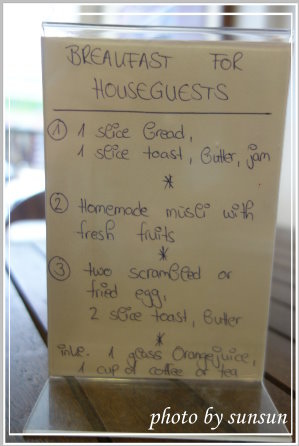 BREAKFAST FOR
HOUSEGUESTS
① 1 slice bread,
1 slice toast, butter, jam
*
② Homemade müsli with
fresh fruits
*
③ two scrambled or
fried egg,
2 slice toast, butter
*
inkl. 1 glass Orangejuice,
1 cup of coffee or tea
photo by sunsun